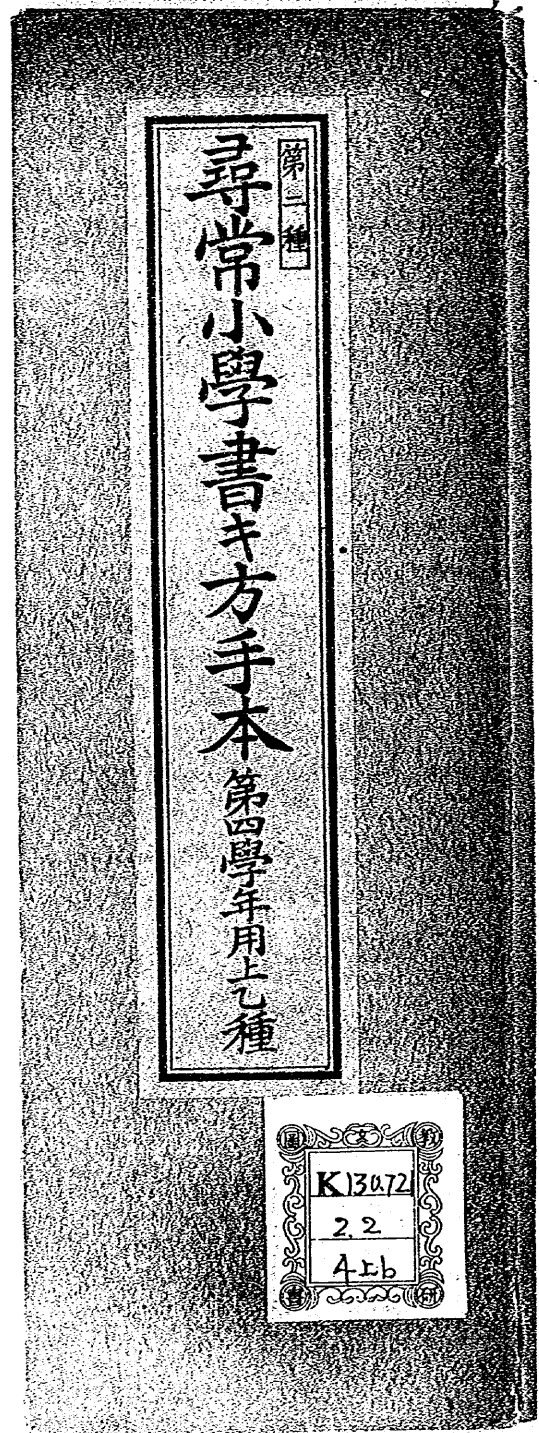 第二種
尋常小學書キ方手本 第四學年用上乙種
教 文 圖
K130.72
2.2
4上b
研 書